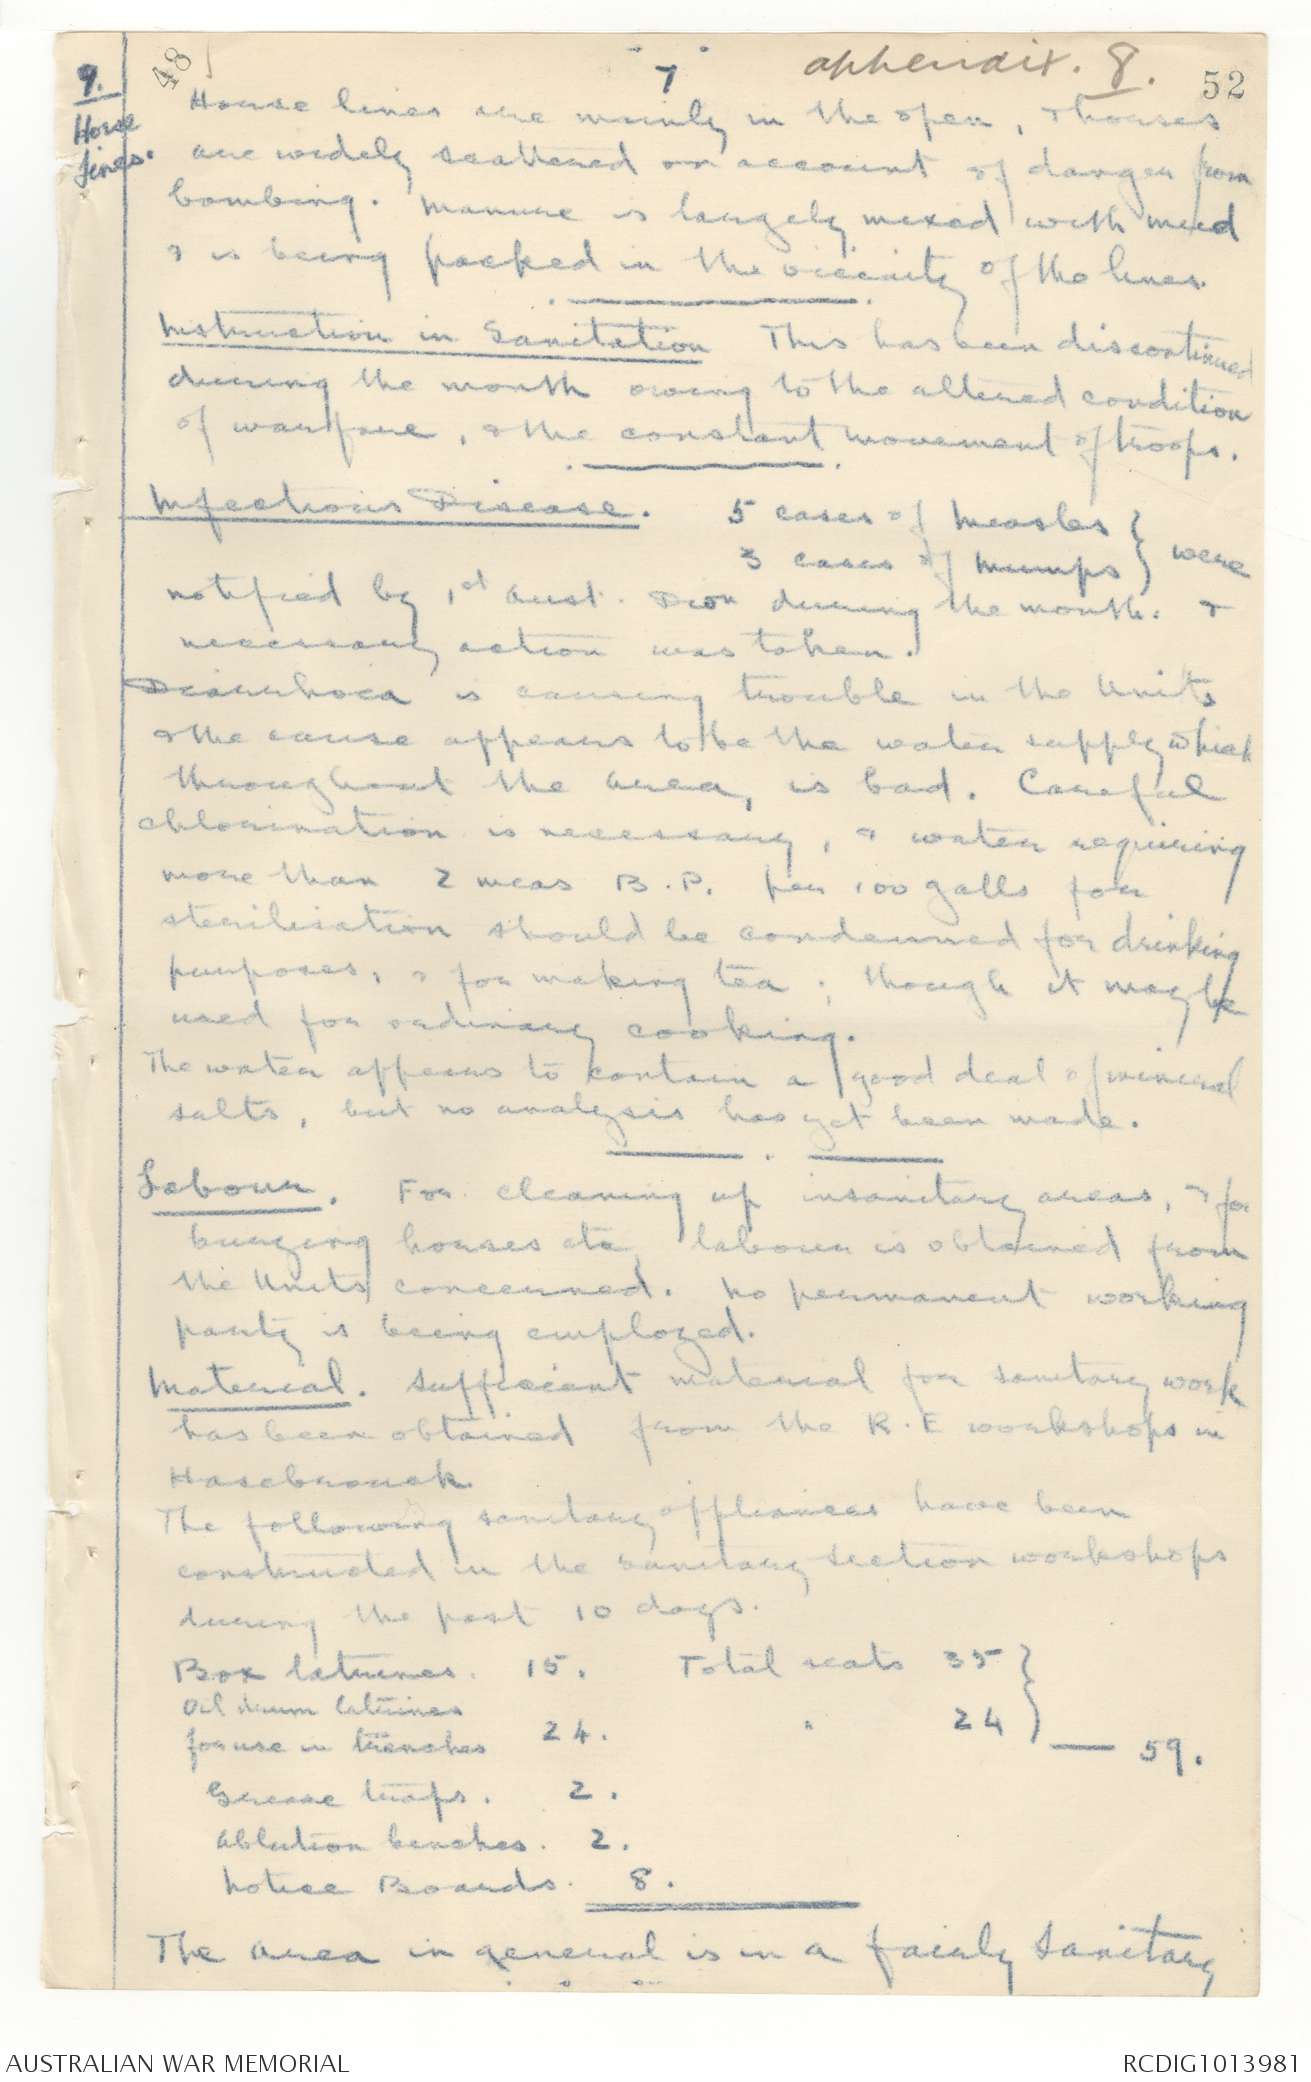 48
7
appendix. 8.
52
9.
Horse
lines.
Horse lines are mainly in the open, & horses
are widely scattered on account of danger from
bombing. Manure is largely mixed with mud
& is being packed in the vicinity of the lines.
Instruction in Sanitation This has been discontinued
during the month owing to the altered condition
of warfare, & the constant movement of troops.
Infectious Disease. 5 cases of Measles }
3 cases of Mumps } were
notified by 1st Aust. Divn during the month. &
necessary action was taken.
Diarrhoea is causing trouble in the Units
& the cause appears to be the water supply which
throughout the area, is bad. Careful
chlorination is necessary, & water requiring
more than 2 meas B.P. per 100 galls for
sterilisation should be condemned for drinking
purposes, & for making tea; though it may be
used for ordinary cooking.
The water appears to contain a good deal of mineral
salts, but no analysis has yet been made.
Labour. For cleaning up insanitary areas, & for
burying horses etc, labour is obtained from
the Units concerned. No permanent working
party is being employed.
Material. Sufficient material for sanitary work
has been obtained from the R.E workshops in
Hazebrouck.
The following sanitary appliances have been
constructed in the Sanitary Section workshops
during the past 10 days.
Box latrines. 15. Total seats 35 }
Oil drum latrines
for use in trenches 24. " 24 } — 59.
Grease traps. 2.
Ablution benches. 2.
Notice Boards. 8.
The area in general is in a fairly sanitary
AUSTRALIAN WAR MEMORIAL
RCDIG1013981